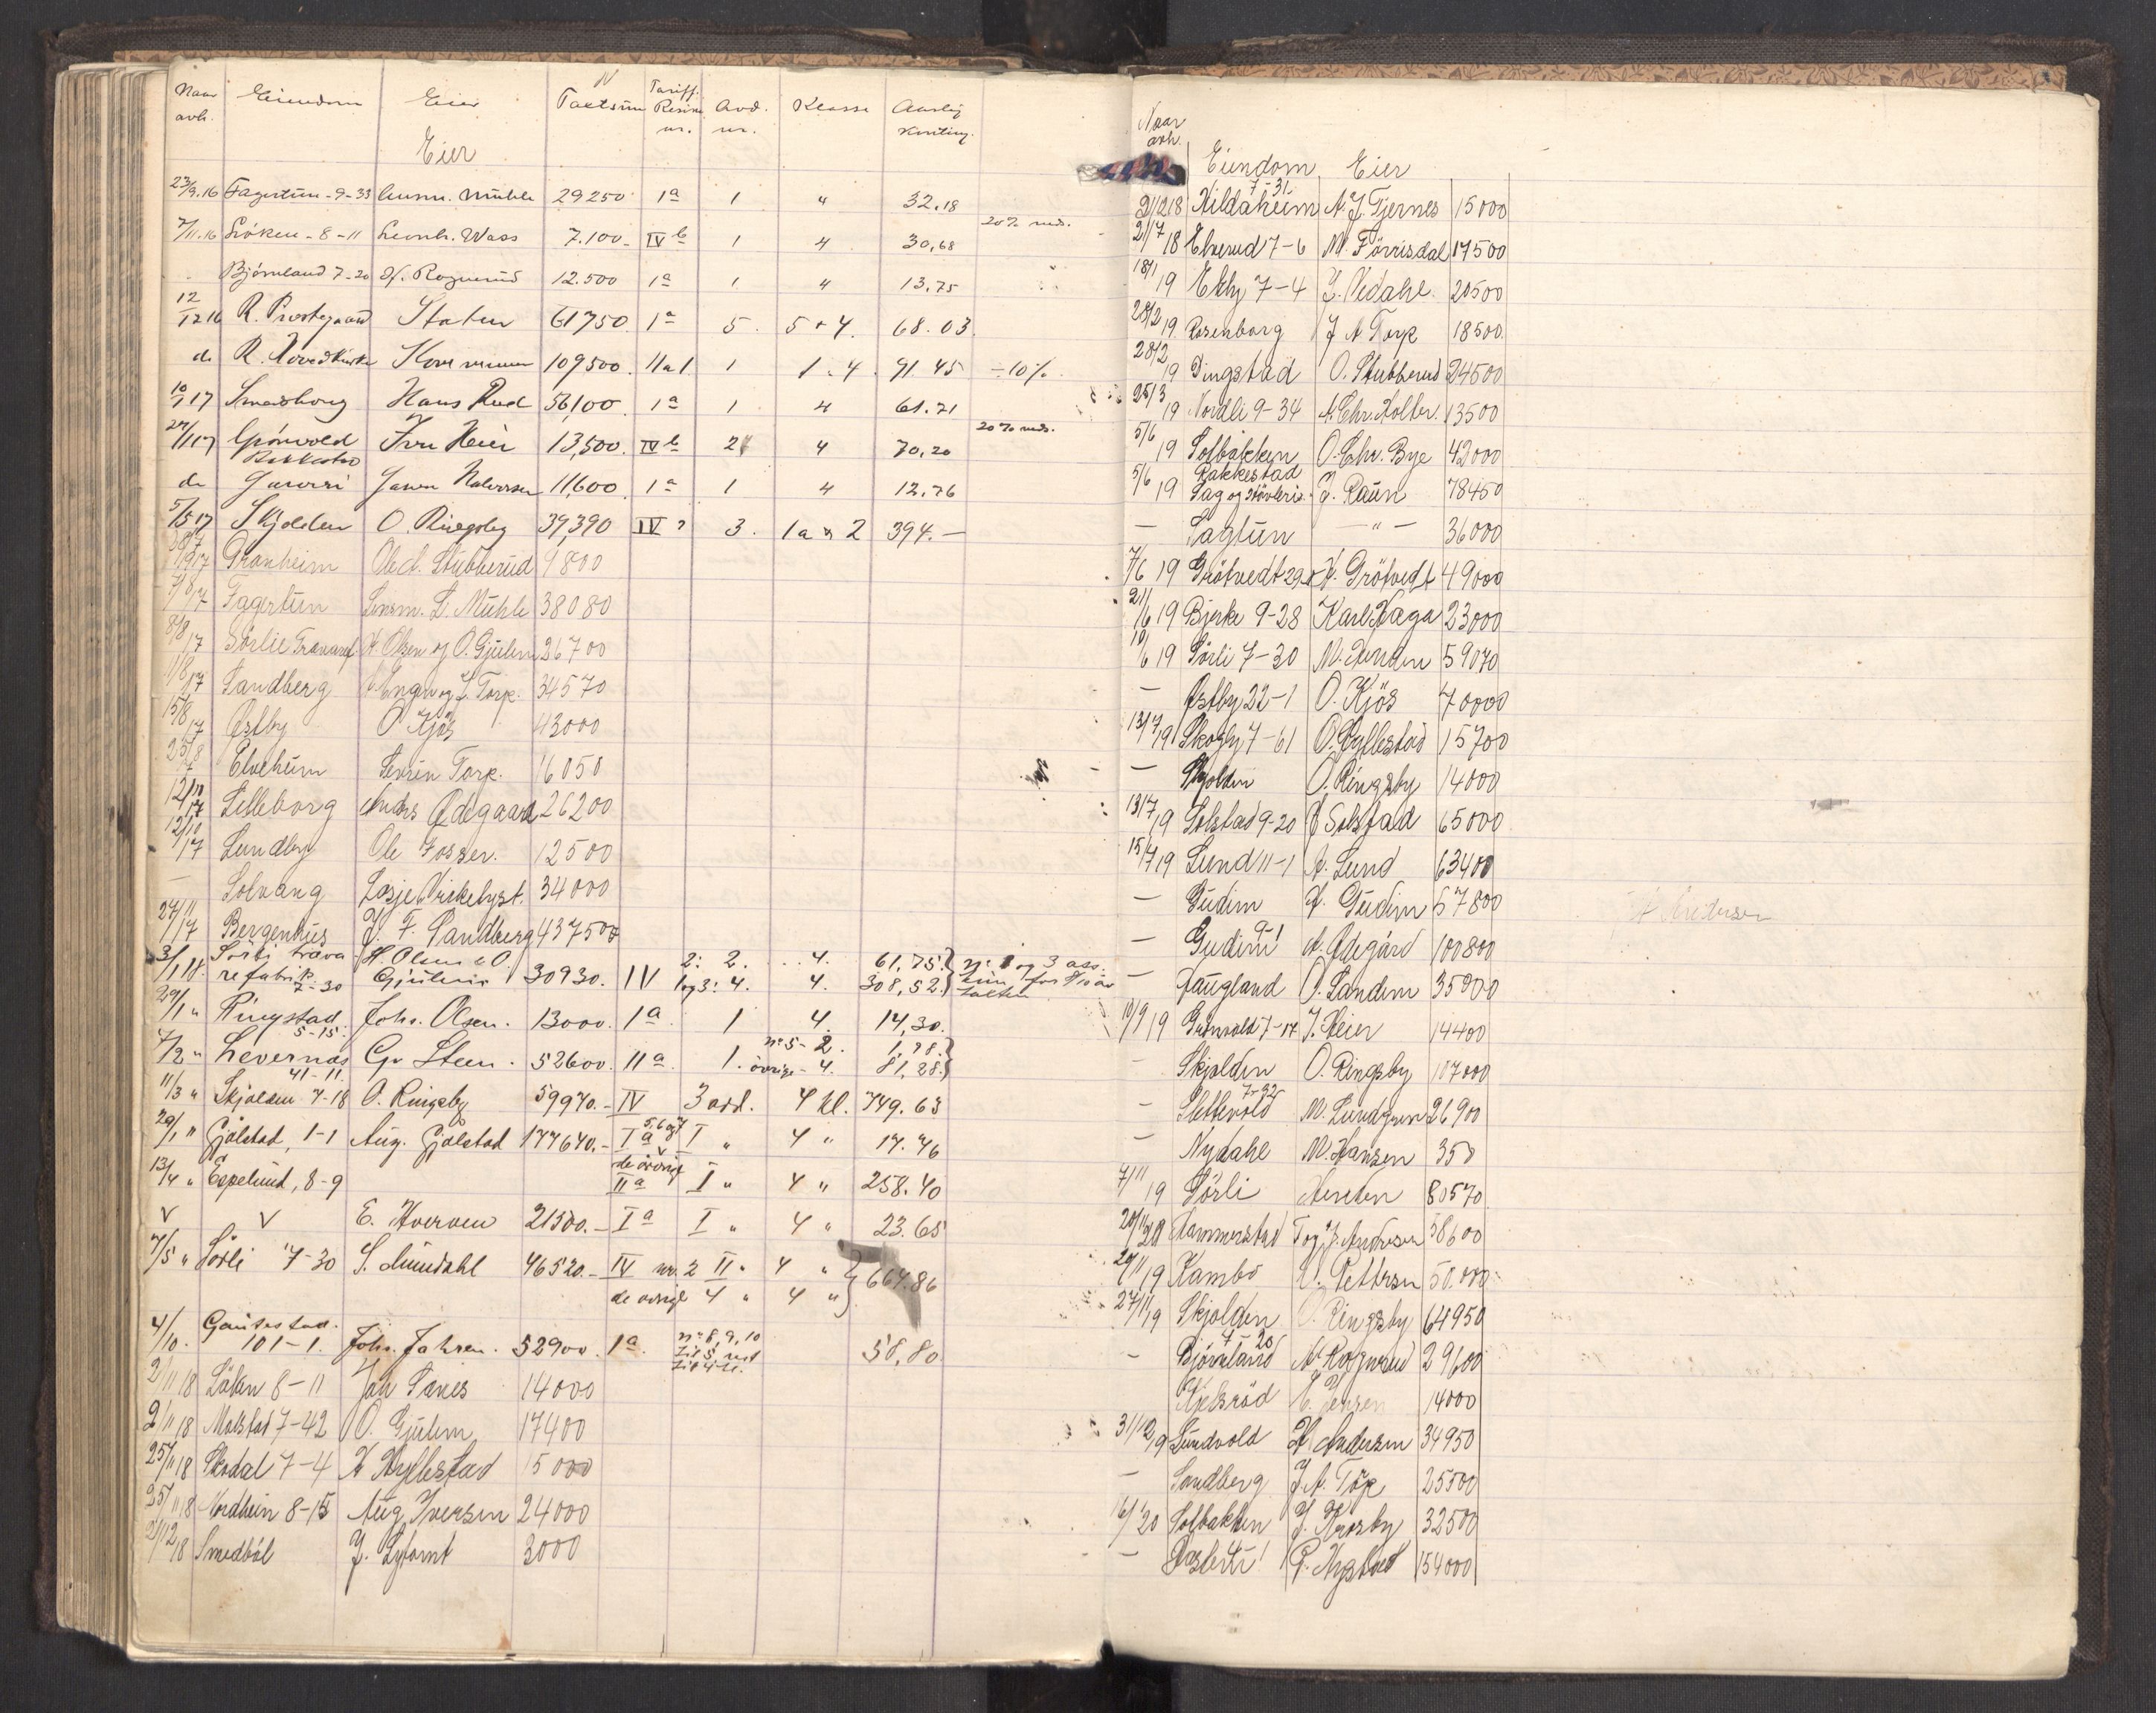 Naar Eiendom Eier Taktsum Tariff. Avd. Klasse Aarlig
avh. Eier nr. nr. Konting.
23/9.16 Fagertun - 9-33 Lensm. Mühle 29250 1a 1 " 32.18
7/11.16 Löken - 8-11 Leonh. Wass 7.100.- IVb 1 4 30,68 20% red.
Björnland 7-20 H. Rognerud 12.500 1a 1 4 13.75 "
12/12 16 R. Prestegaard Staten 61750 1a 5. 5 + 4. 68.03
do R. Hovedkirke Kommunen 109500. IIa1 1 1 . 4 91.45 ÷ 10%
10/1 17 Smedsborg Hans Rud 56,100. 1a 1 4 61.71
27/1 17 Grönvold Iver Heier 13,500. IVb 2 4 70,20 20% red.
Rakkestad
do Halvorsen 11,600. 1a 1 4 12.76
5/5 17 Skjolden O. Ringsby 39,390 IV 3. 1a 2 394.-
17 Granheim Ole A. Stubberud 9800
7/8 17 Fagertun Lensm. L. Mühle 38080
8/8 17 Sörlie Travaref H. Olsen og O. Gjulem 26700
17 Sandberg Engen og J. Torp. 34570
15/8 17 Østby O Kjös 43000
23/8 17 Elveheim Severin Torp. 16050
12/10 17 Lilleborg Anders Ødegaard 26200
12/10 17 Lundby Ole Fosser. 12500
— Solvang 34000
27/11 17 Bergenhus J. F. Sandberg 437500
3/1 18. Sörli trava H. Olsen & O 2: 2. 4. 61,75.} nr. 1 og 3 ass.
refabrik 7-30 Gjulem 30930. IV 1 og 3: 4. 4. 308,52.}
29/1 " Ringstad 5-15 Johs. Olsen. 13000. 1a 1 4. 14,30.
nr 5 - 2. 1,78.}
7/2 " Levernæs 41-11. Gr. Steen. 52600. IIa 1. övrige - 4. 81,28.}
11/3 " Skjolden 7-18 O. Ringsby 59970.- IV 3 avd. 4 kl. 749.63
20/1 " Gjölstad, 1-1 Aug. Gjölstad 177640.- Ia 5,6 og 7 I " 4 " 17.76
13/4 " Espelund, 8-9 de övrige IIa I " 4 " 258.40
v v E. Hverven 21500.- Ia I " 4 " 23.65
7/5 " Sörli 7-30 S. Sundahl 46520.- IV nr. 2 II " 4 " } 664.86
de övrige 4 " 4 " }
4/10. Gautestad.
101-1. Johs. Jahren. 52900. 1a nr 8, 9, 10 58,80
2/11 18 Löken 8-11 Joh Sanes 14000
2/11 18 Molstad 7-42 O. Gjulem 17400
25/11 18 Skodal 7-4 K Kyllestad 15000
25/11 18 Nordheim 8-15 Aug Iversen 24000
2/12 18 Smedböl J. Lytomt 3000
Naar
avh.
Eiendom Eier
7-31
2/12 18 Kildaheim A. J. Tjernes 15000
21/7 18 Elverud 7-6 M. Förrisdal 17500
18/1 19 Ekly 7-4 J. Vedahl 20500
28/2 19 Rosenborg J A Torp 18500
28/2 19 Ringstad O. Stubberud 24500
25/3 19 Nordli 9-34 A. Chr. Holter. 13500
5/6 19 Solbakken O. Chr. Bye 42000
Rakkestad
5/6 19 Sag og Hövleri J. Raun 78450
— Sagtun — " — 36000
7/6 19 Grötvedt 29-5 H. Grötvedt 49000
21/6 19 Bjerke 9-28 Karl Haga 23000
10/6 19 Sörli 7-30 M. Amsden 59070
— Østby 22-1 O. Kjös 70000
13/7 19 Skogly 7-61 O. Kyllestad 15700
— Skjolden O. Ringsby 14000
13/7 19 Solstad 9-20 J Solstad 65000
15/7 19 Lund 11-1 A. Lund 63400
— Gudim H. Gudim 67800
9-1
— Gudim A. Ødegård 100800
— Haugland O. Sandem 35000
10/9 19 Grönvold 7-17 I. Heier 14400
— Skjolden O. Ringsby 107000
7-32
— Slettevold M. Lundgren 26900
— Nydahl M. Hansen 350
7/11 19 Sörli 80570
20/11 20 Hammerstad T og J. Andersen 58600
20/11 19 Kambo O. Pettersen 50.000
27/11 19 Skjolden O. Ringsby 64950
7-20
— Björnland A. Rognerud 29600
Kjelsröd E. Jensen 14000
31/12 19 Lundvold H Andersen 34950
— Sandberg J. A. Torp 25500
16/1 20 Solbakken J. Krosby 32500
— P. Nygård 154000
H Andersen